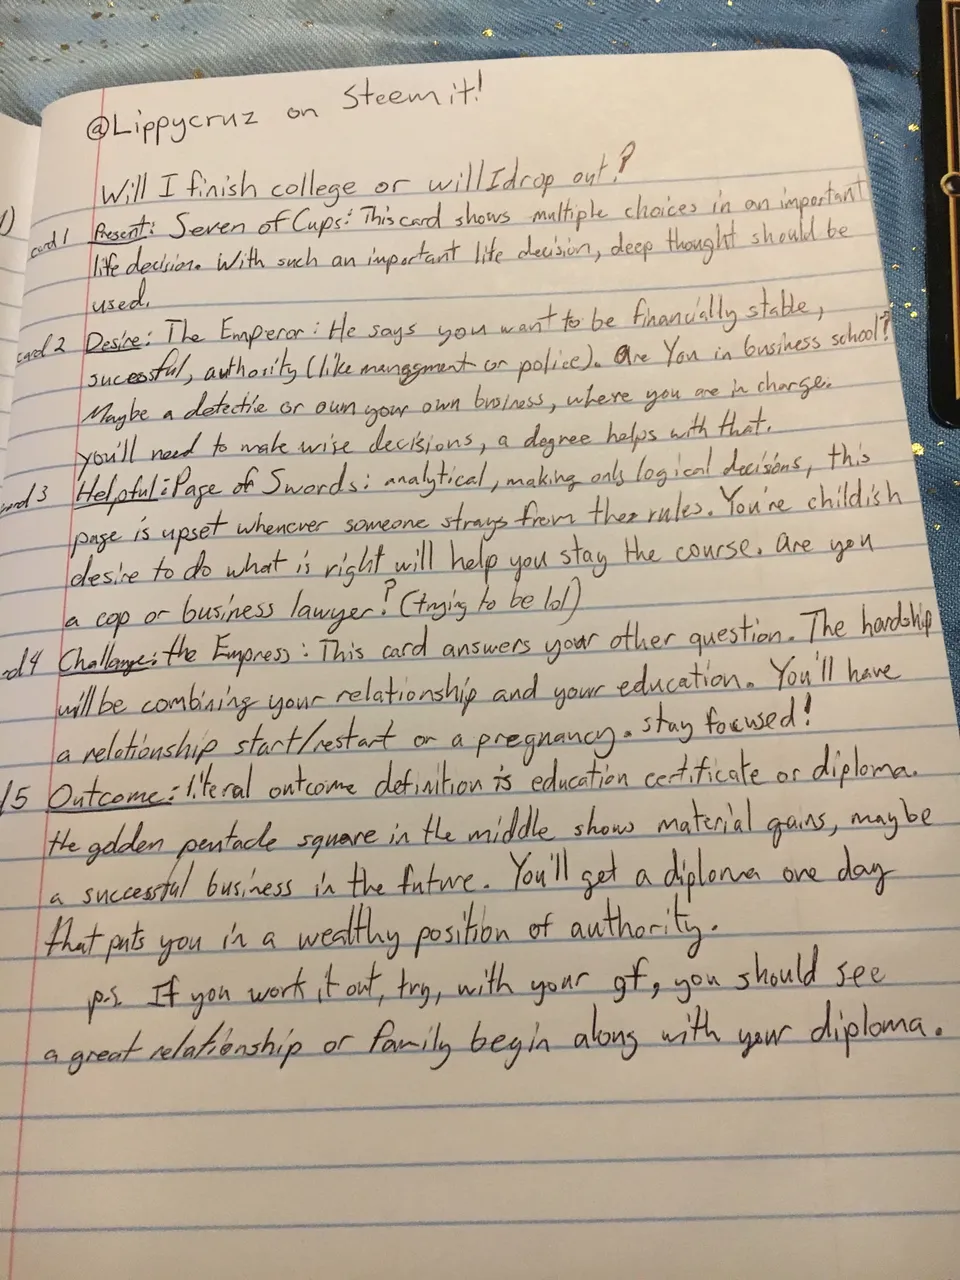 @Lippycruz on Steemit!
Will I finish college or will I drop out?
card 1 Present: Seven of Cups: This card shows multiple choices in an important
life decision. With such an important life decision, deep thought should be
used.
card 2 Desire: The Emperor: He says you want to be financially stable,
sucessful, authority (like management or police). Are You in business school?
Maybe a detective or own your own business, where you are in charge.
you'll need to make wise decisions, a degree helps with that.
card 3 Helpful: Page of Swords: analytical, making only logical decisions, this
page is upset whenever someone strays from the rules. You're childish
desire to do what is right will help you stay the course. Are you
a cop or business lawyer? (trying to be lol)
d4 Challenge: the Empress: This card answers your other question. The hardship
will be combining your relationship and your education. You'll have
a relationship start/restart or a pregnancy. stay focused!
5 Outcome: literal outcome definition is education certificate or diploma.
the golden pentacle square in the middle shows material gains, maybe
a successful business in the future. You'll get a diploma one day
that puts you in a wealthy position of authority.
p.s. If you work it out, try, with your gf, you should see
a great relationship or family begin along with your diploma.